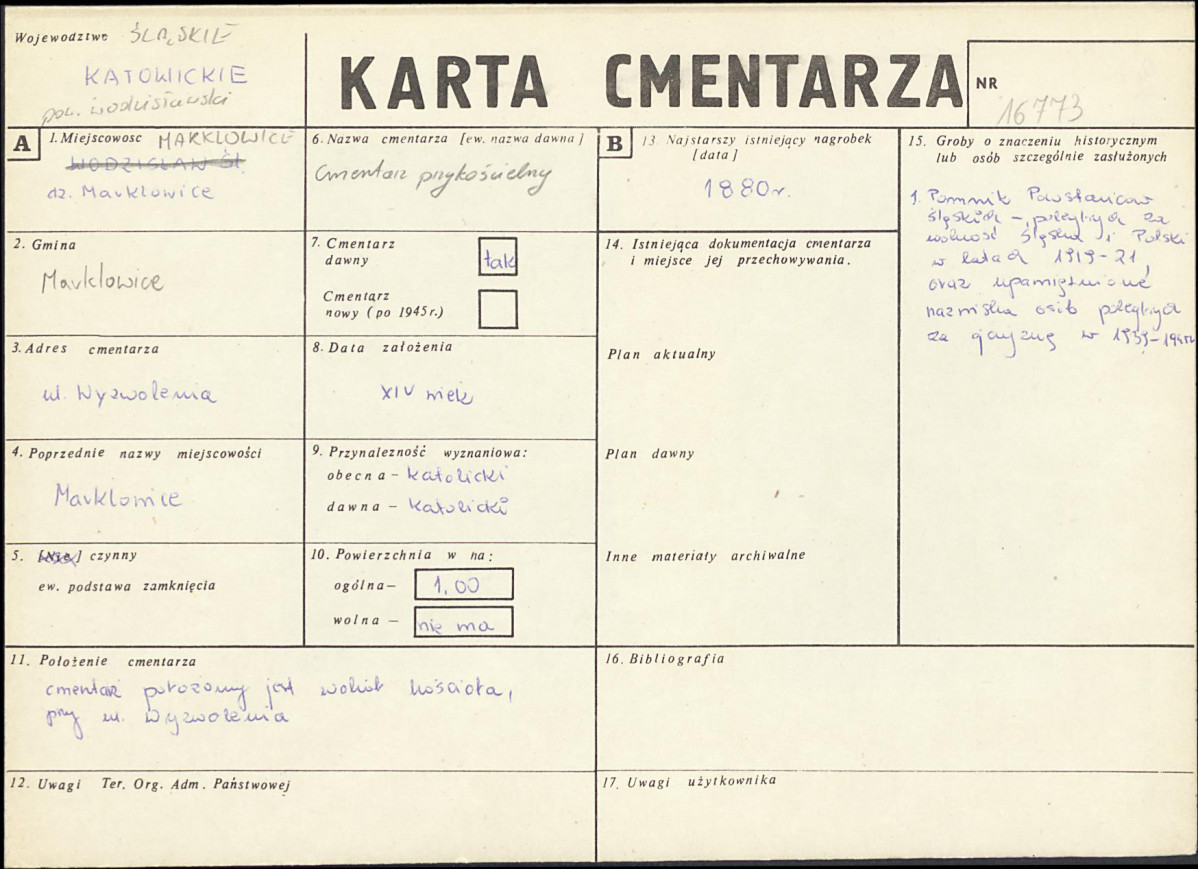 Województwo ŚLĄSKIE
KATOWICKIE
pow. wodzisławski
KARTA CMENTARZA
NR
16773
A
1. Miejscowosc MARKLOWICE
WODZISŁAW ŚL.
dz. Marklowice
2. Gmina
Marklowice
3. Adres cmentarza
ul. Wyzwolenia
4. Poprzednie nazwy miejscowości
Marklowice
5. [Nie] czynny
ew. podstawa zamknięcia
6. Nazwa cmentarza [ew. nazwa dawna]
Cmentarz przykościelny
7. Cmentarz
dawny tak
Cmentarz
nowy (po 1945 r.)
8. Data założenia
XIV wiek
9. Przynależność wyznaniowa:
obecna – katolicki
dawna – katolicki
10. Powierzchnia w ha:
ogólna – 1,00
wolna – nie ma
11. Położenie cmentarza
cmentarz położony jest wokół kościoła,
przy ul. Wyzwolenia
12. Uwagi Ter. Org. Adm. Państwowej
B
13 Najstarszy istniejący nagrobek
[data]
1880 r.
14. Istniejąca dokumentacja cmentarza
i miejsce jej przechowywania.
Plan aktualny
Plan dawny
Inne materiały archiwalne
15. Groby o znaczeniu historycznym
lub osób szczególnie zasłużonych
1. Pomnik Powstańców
śląskich – poległych za
wolność Śląska i Polski
w latach 1919-21,
oraz upamiętnione
nazwiska osób poległych
za ojczyznę w 1939-1945 r
16. Bibliografia
17. Uwagi użytkownika